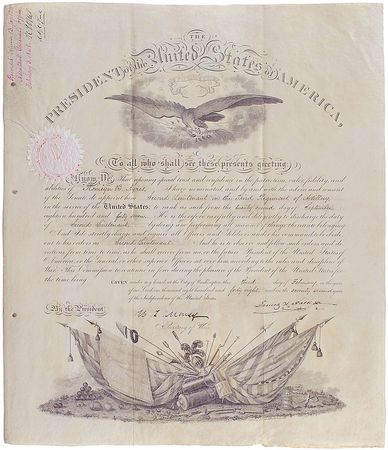 THE
PRESIDENT of the United States of AMERICA,
To all who shall see these presents greeting:
Know Ye, That reposing special trust and confidence in the patriotism, valor, fidelity, and
abilities of I have nominated and by and with the advice and consent
of the Senate do appoint him Second Lieutenant in the Regiment of Artillery
in the service of the United States: to rank as such from the day of
eighteen hundred and forty He is therefore carefully and diligently to discharge the duty
of Second Lieutenant by doing and performing all manner of things thereunto belonging.
And I do strictly charge and require all Officers and Soldiers under his command to be obedient
to his orders as Second Lieutenant And he is to observe and follow such orders, and di-
rections from time to time, as he shall receive from me or the future President of the United States of
America, or the General or other superior Officers set over him, according to the rules and discipline of
War. This Commission to continue in force during the pleasure of the President of the United States for
the time being.
GIVEN under my hand at the City of Washington this day of February in the year
of our Lord one thousand eight hundred and forty eight and in the year
of the Independence of the United States.
By the President
James K. Polk
W. L. Marcy
Secretary of War.